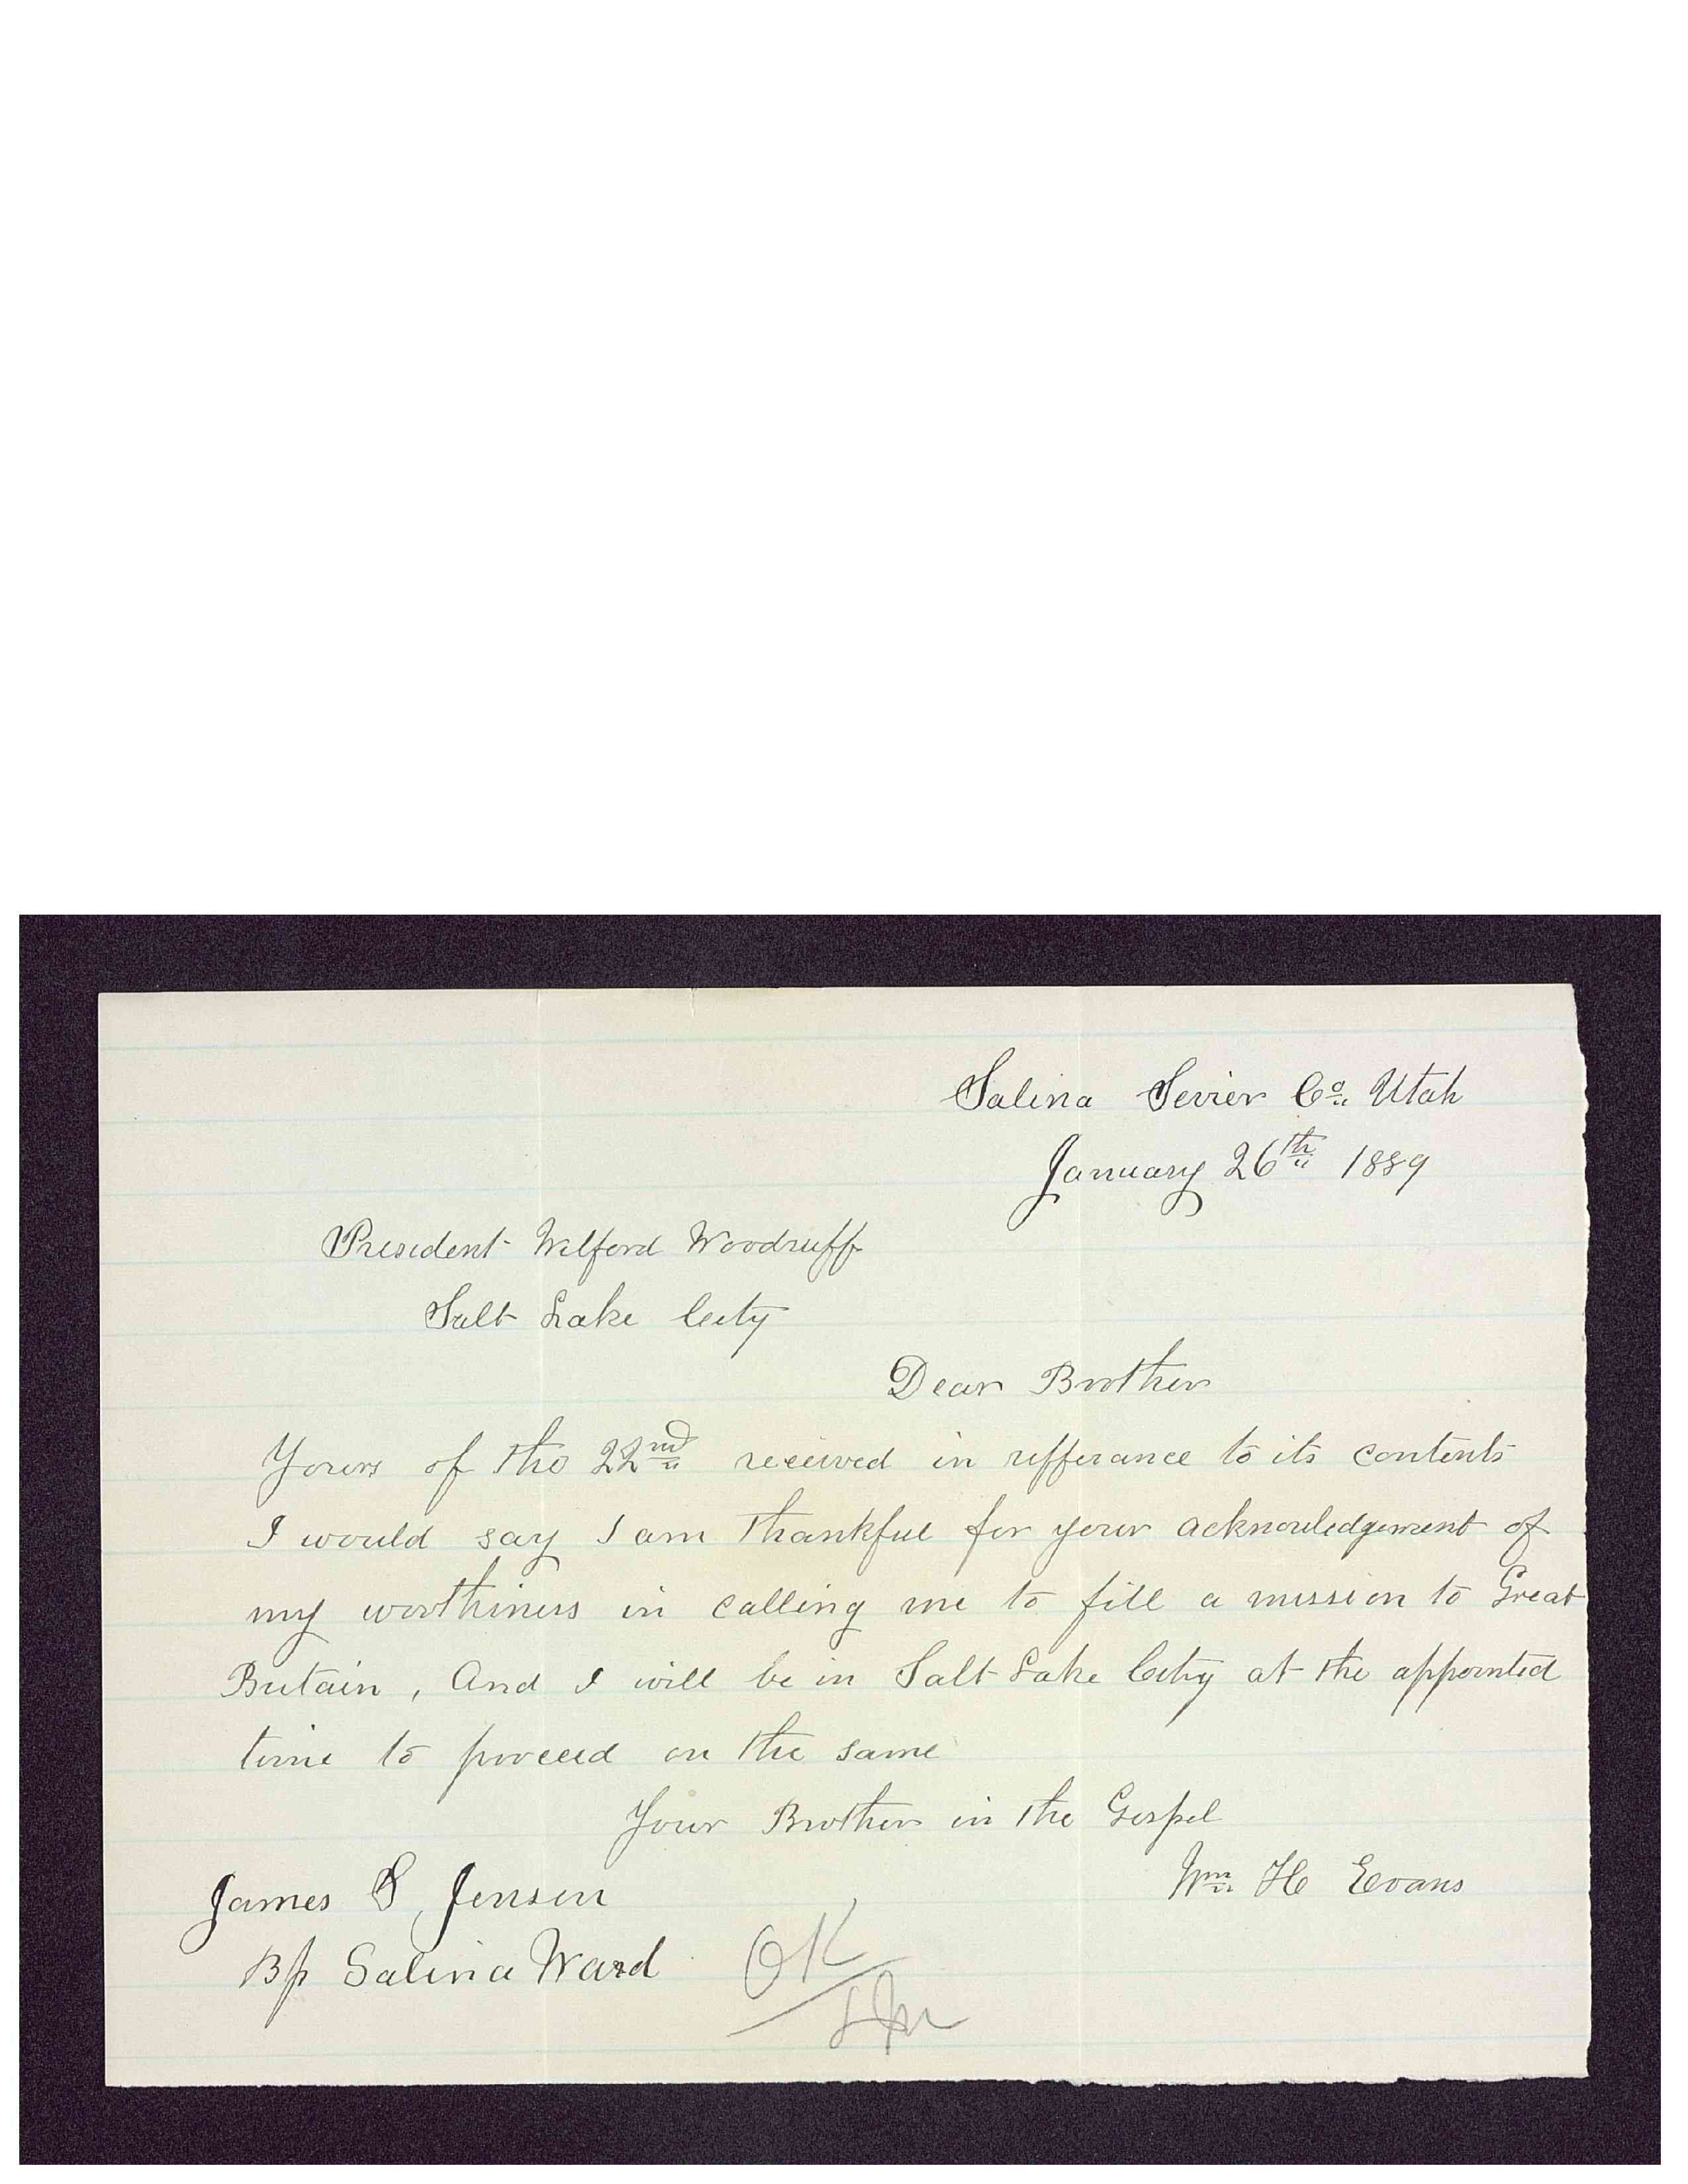 Salina Sevier Co. Utah
January 26th 1889
President Wilford Woodruff
Salt Lake City
Dear Brother
Yours of the 22nd received in refferance to its contents
I would say I am thankful for your acknowledgement of
my worthiness in calling me to fill a mission to Great
Britain, And I will be in Salt Lake City at the appointed
time to proceed on the same
Your Brother in the Gospel
Wm H Evans
James S, Jensen
Bp Salina Ward
OK